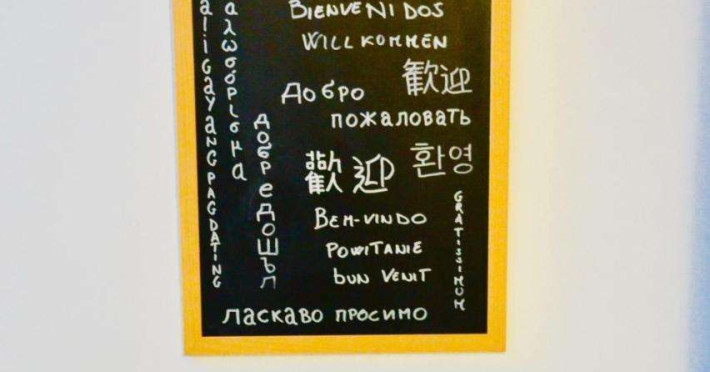 aliGayaNG PAGDATING
αλωσόρισμα
BIENVENIDOS
WILLKOMMEN
歡迎
Добро
пожаловать
добредошъл
歡迎
환영
BEM-VINDO
POWITANIE
bUN VENIT
GRATISSIMUM
Ласкаво просимо